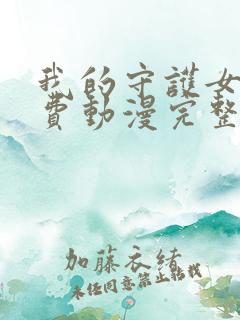 我的守護女
費動漫完整
加藤衣緒
未经同意禁止转载